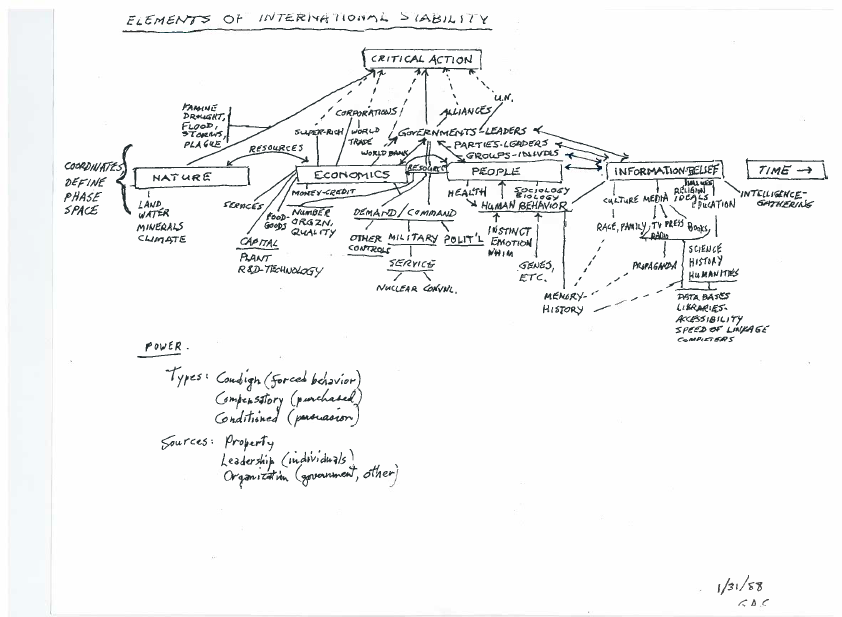 ELEMENTS OF INTERNATIONAL STABILITY
CRITICAL ACTION
U.N.
FAMINE
DROUGHT,
FLOOD,
STORMS,
PLAGUE
CORPORATIONS
ALLIANCES
SUPER-RICH
WORLD
TRADE
GOVERNMENTS-LEADERS
WORLD BANK
PARTIES-LEADERS
GROUPS-INDIVDLS
RESOURCES
COORDINATES
DEFINE
PHASE
SPACE
NATURE
ECONOMICS
RESOURCE
PEOPLE
INFORMATION/BELIEF
TIME →
INTELLIGENCE-
GATHERING
LAND
WATER
MINERALS
CLIMATE
SERVICES
FOOD-
GOODS
CAPITAL
PLANT
R&D-TECHNOLOGY
MONEY-CREDIT
NUMBER
ORGZN.
QUALITY
DEMAND/COMMAND
OTHER
CONTROLS
MILITARY
POLIT'L
SERVICE
NUCLEAR CONVNL.
HEALTH
SOCIOLOGY
BIOLOGY
HUMAN BEHAVIOR
INSTINCT
EMOTION
WHIM
GENES,
ETC.
MEMORY-
HISTORY
CULTURE
MEDIA
RELIGION
IDEALS
EDUCATION
RACE, FAMILY,
TV PRESS
RADIO
BOOKS,
PROPAGANDA
SCIENCE
HISTORY
HUMANITIES
DATA BASES
LIBRARIES-
ACCESSIBILITY
SPEED OF LINKAGE
COMPUTERS
POWER.
Types: Condign (forced behavior)
Compensatory (purchased)
Conditioned (persuasion)
Sources: Property
Leadership (individuals)
Organization (government, other)
1/31/88